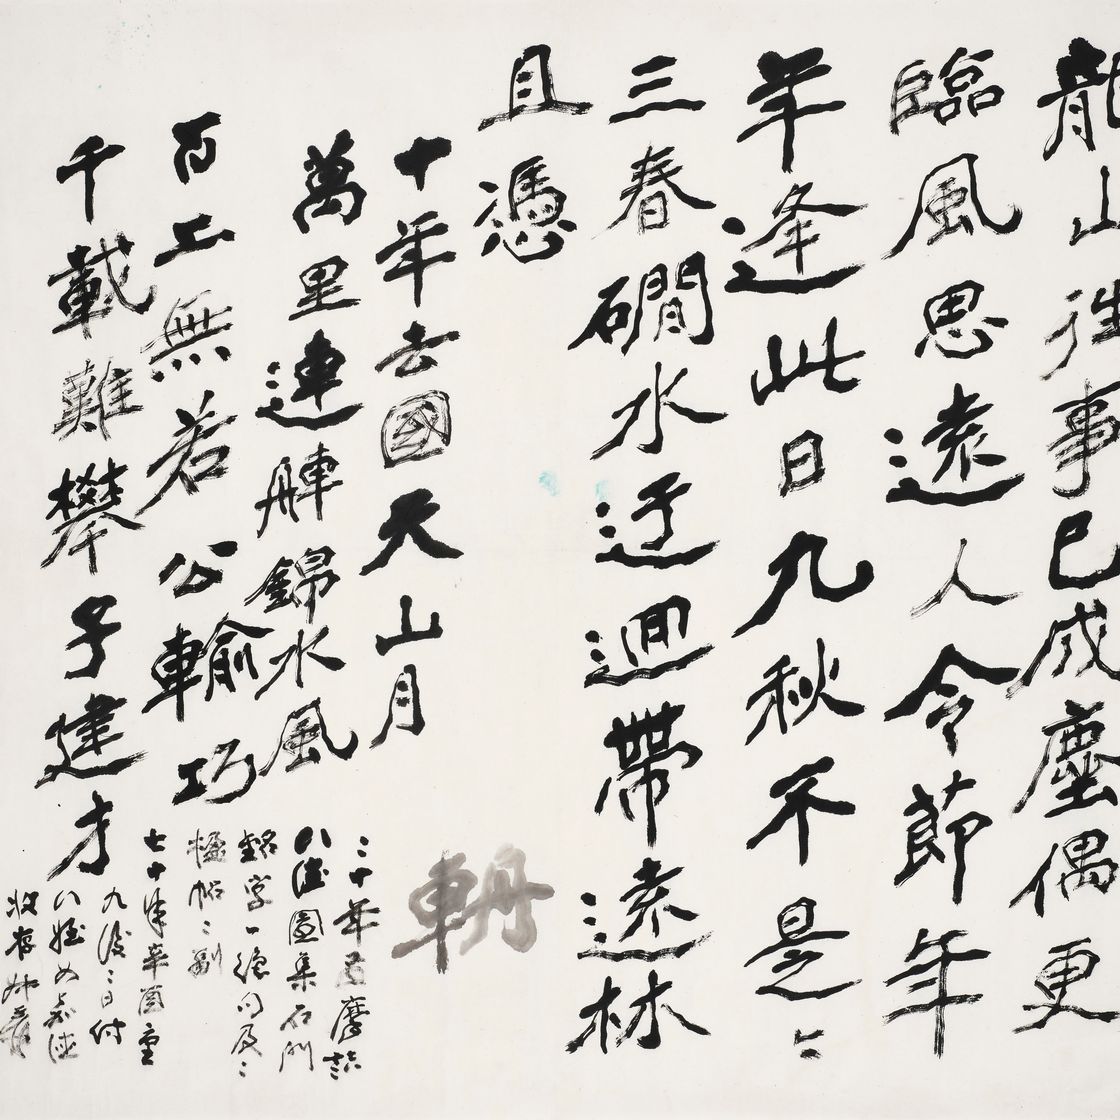 龍山往事已成塵偶更
臨風思遠人令節年
年逢此日九秋不是
三春磵水迂迴帶遠林
且憑
十年去國天山月
萬里連錦水風
百工無若公輸巧
千載難攀子建才
輈
三十年居摩詰
八德園集石門
銘字一絕句及
楹帖
七十年辛酉重
九後三日付
八姪女嘉德
收存 爰